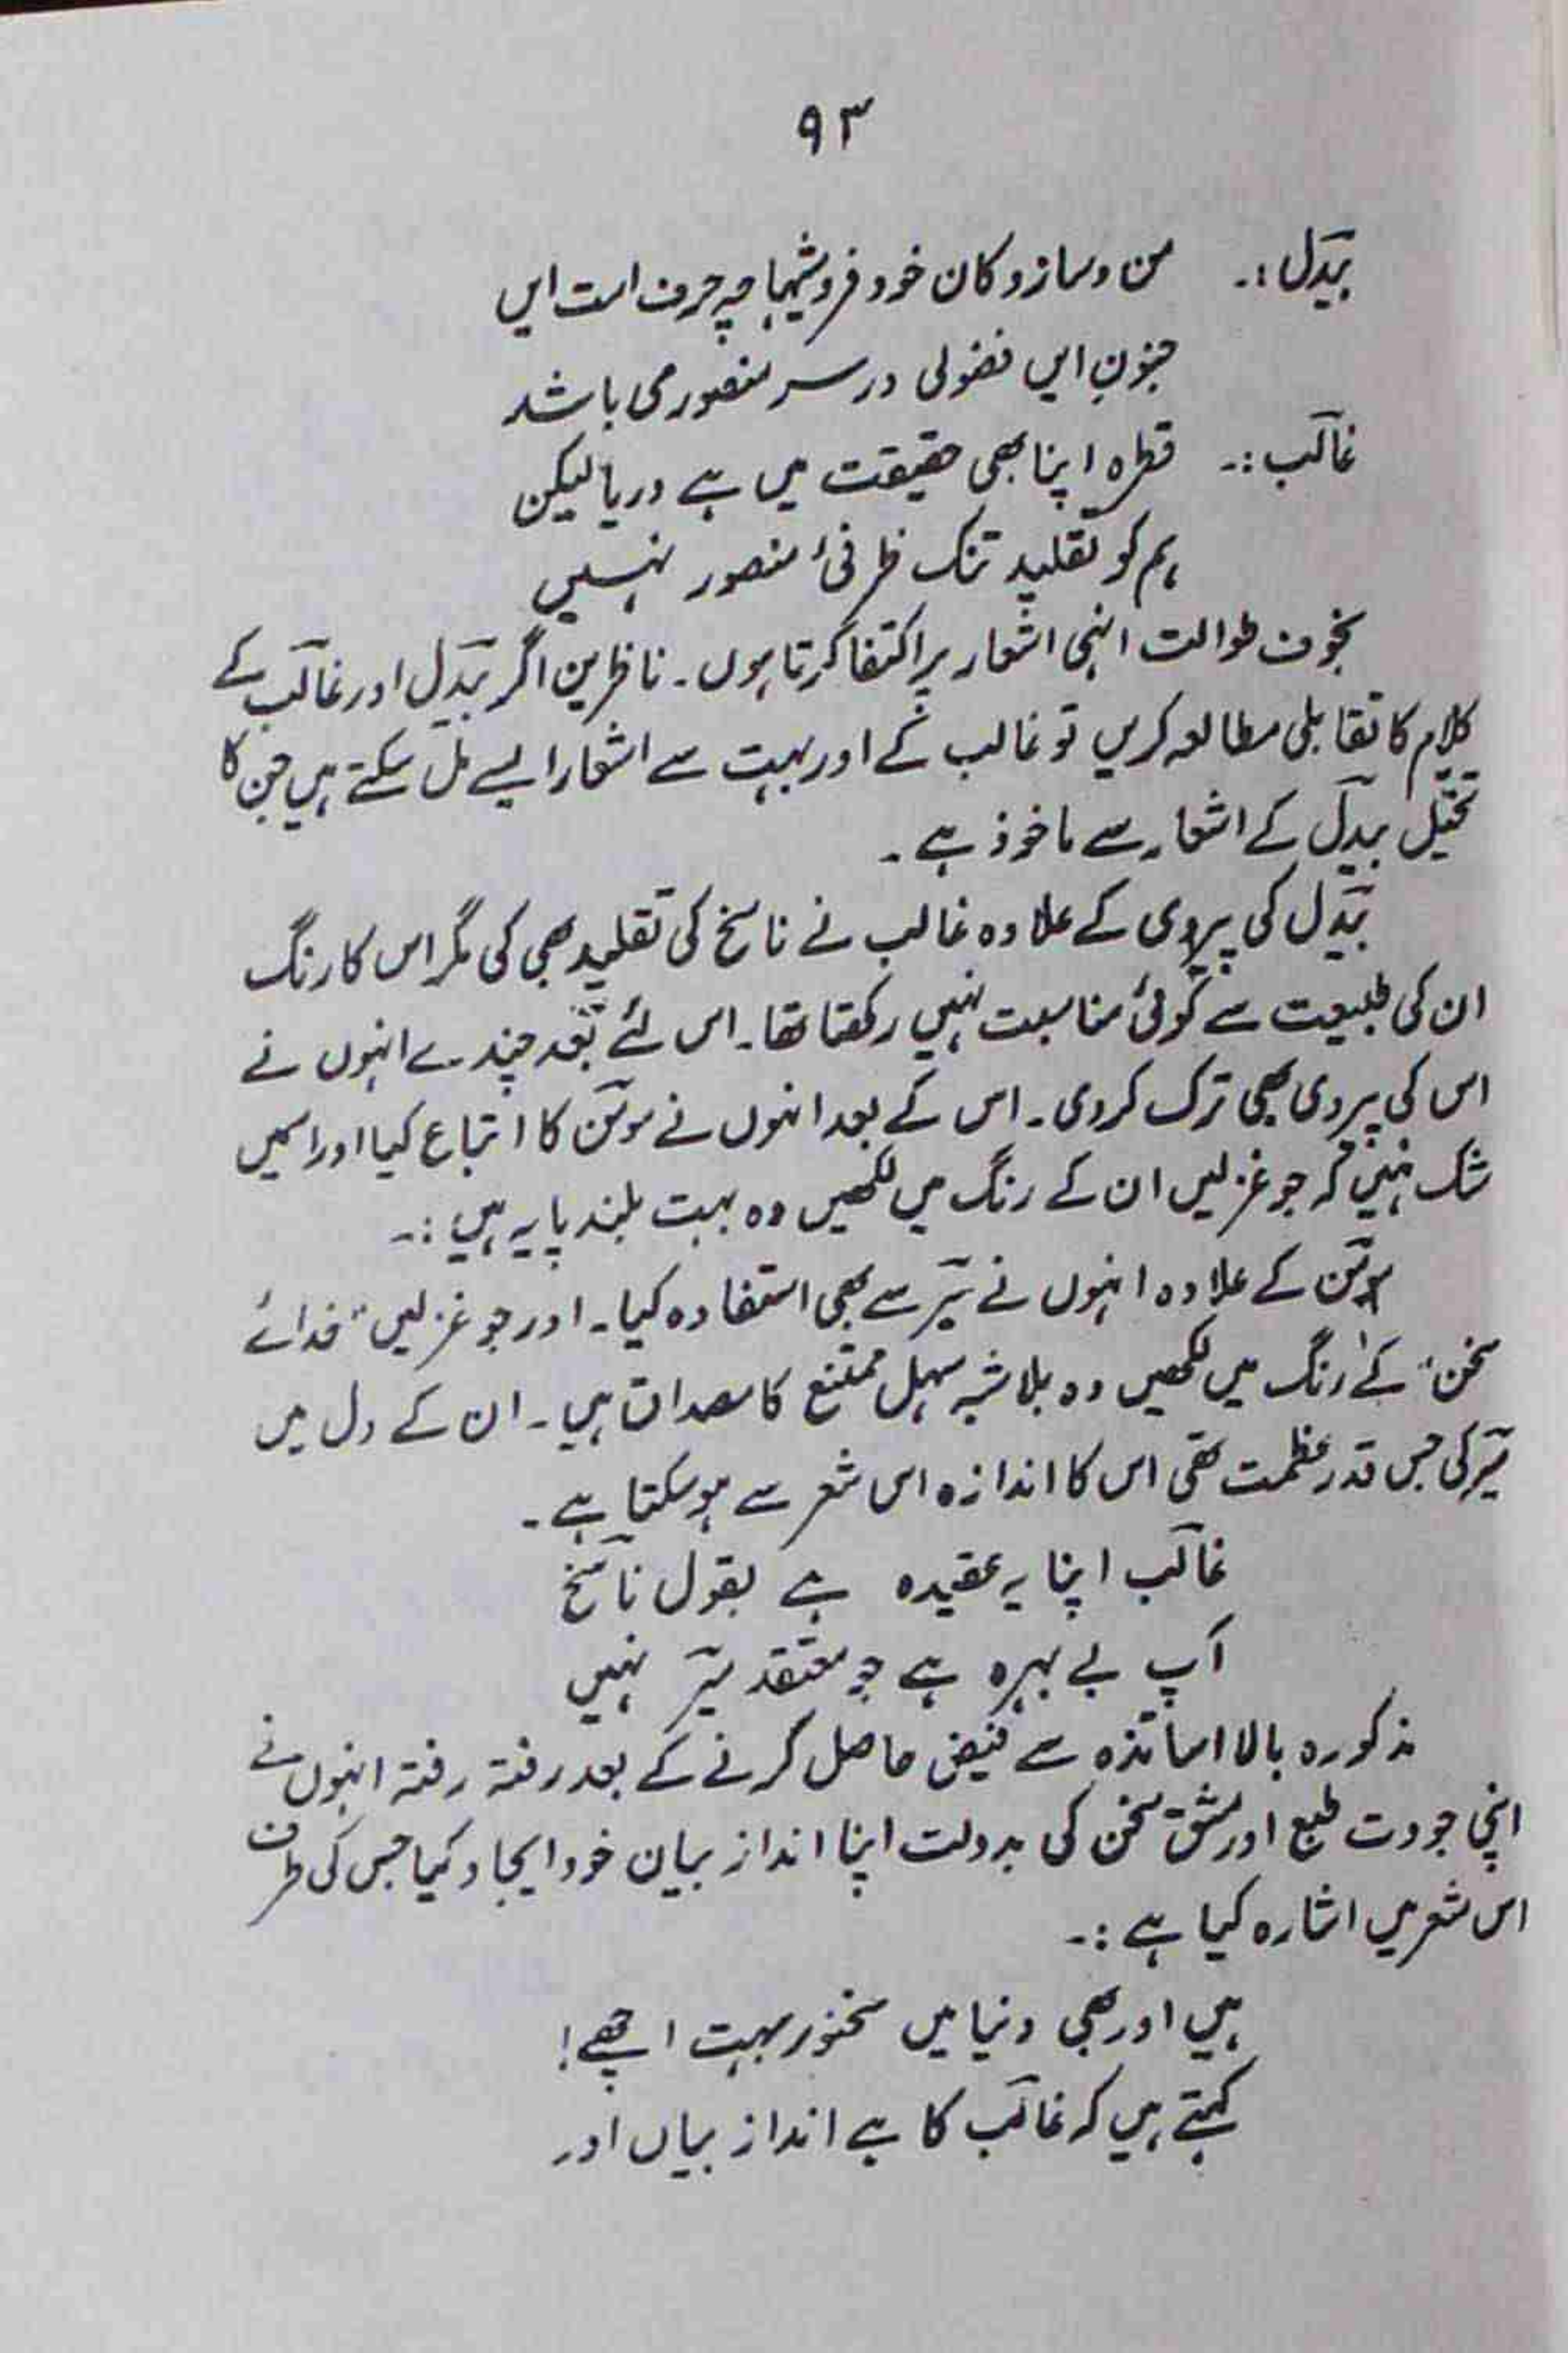 ۹۳
بیدل :۔ من و ساز و کان خود فروشیہا چہ حرف است ایں
جنونِ ایں فضولی در سر منصور می باشد
غالب :۔ قطرہ اپنا بھی حقیقت میں ہے دریا لیکن
ہم کو تقلیدِ تنک ظرفیٔ منصور نہیں
بخوف طوالت انہی اشعار پر اکتفا کرتا ہوں۔ ناظرین اگر بیدل اور غالب کے
کلام کا تقابلی مطالعہ کریں تو غالب کے اور بہت سے اشعار ایسے مل سکتے ہیں جن کا
تخیّل بیدل کے اشعار سے ماخوذ ہے۔
بیدل کی پیروی کے علاوہ غالب نے ناسخ کی تقلید بھی کی مگر اس کا رنگ
ان کی طبیعت سے کوئی مناسبت نہیں رکھتا تھا۔ اس لئے بعد چندے انہوں نے
اس کی پیروی بھی ترک کر دی۔ اس کے بعد انہوں نے مومن کا اتباع کیا اور اسمیں
شک نہیں کہ جو غزلیں ان کے رنگ میں لکھیں وہ بہت بلند پایہ ہیں :۔
مومن کے علاوہ انہوں نے میر سے بھی استفادہ کیا۔ اور جو غزلیں "خدائے
سخن" کے رنگ میں لکھیں وہ بلا شبہ سہل ممتنع کا مصداق ہیں۔ ان کے دل میں
میر کی جس قدر عظمت تھی اس کا اندازہ اس شعر سے ہو سکتا ہے۔
غالب اپنا یہ عقیدہ ہے بقول ناسخ
آپ بے بہرہ ہے جو معتقد میر نہیں
مذکورہ بالا اساتذہ سے فیض حاصل کرنے کے بعد رفتہ رفتہ انہوں نے
اپنی جودت طبع اور مشق سخن کی بدولت اپنا انداز بیان خود ایجاد کیا جس کی طرف
اس شعر میں اشارہ کیا ہے :۔
ہیں اور بھی دنیا میں سخنور بہت اچھے!
کہتے ہیں کہ غالب کا ہے انداز بیاں اور